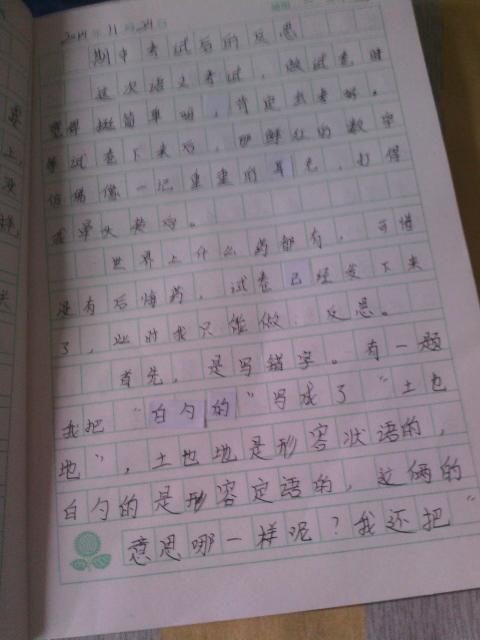 2014年11月24日
期中考试后的反思
这次语文考试，做试卷时
觉得挺简单的，肯定我考好。
等试卷下来后，那鲜红的数字
仿佛像一记重重的耳光，打得
我晕头转向。
世界上什么药都有，可惜
没有后悔药，试卷已经发下来
了，此时我只能做：反思。
首先，是写错字。有一题
我把“白勺的”写成了“土也
地”，土也地是形容状语的，
白勺的是形容定语的，这俩的
意思哪一样呢？我还把“